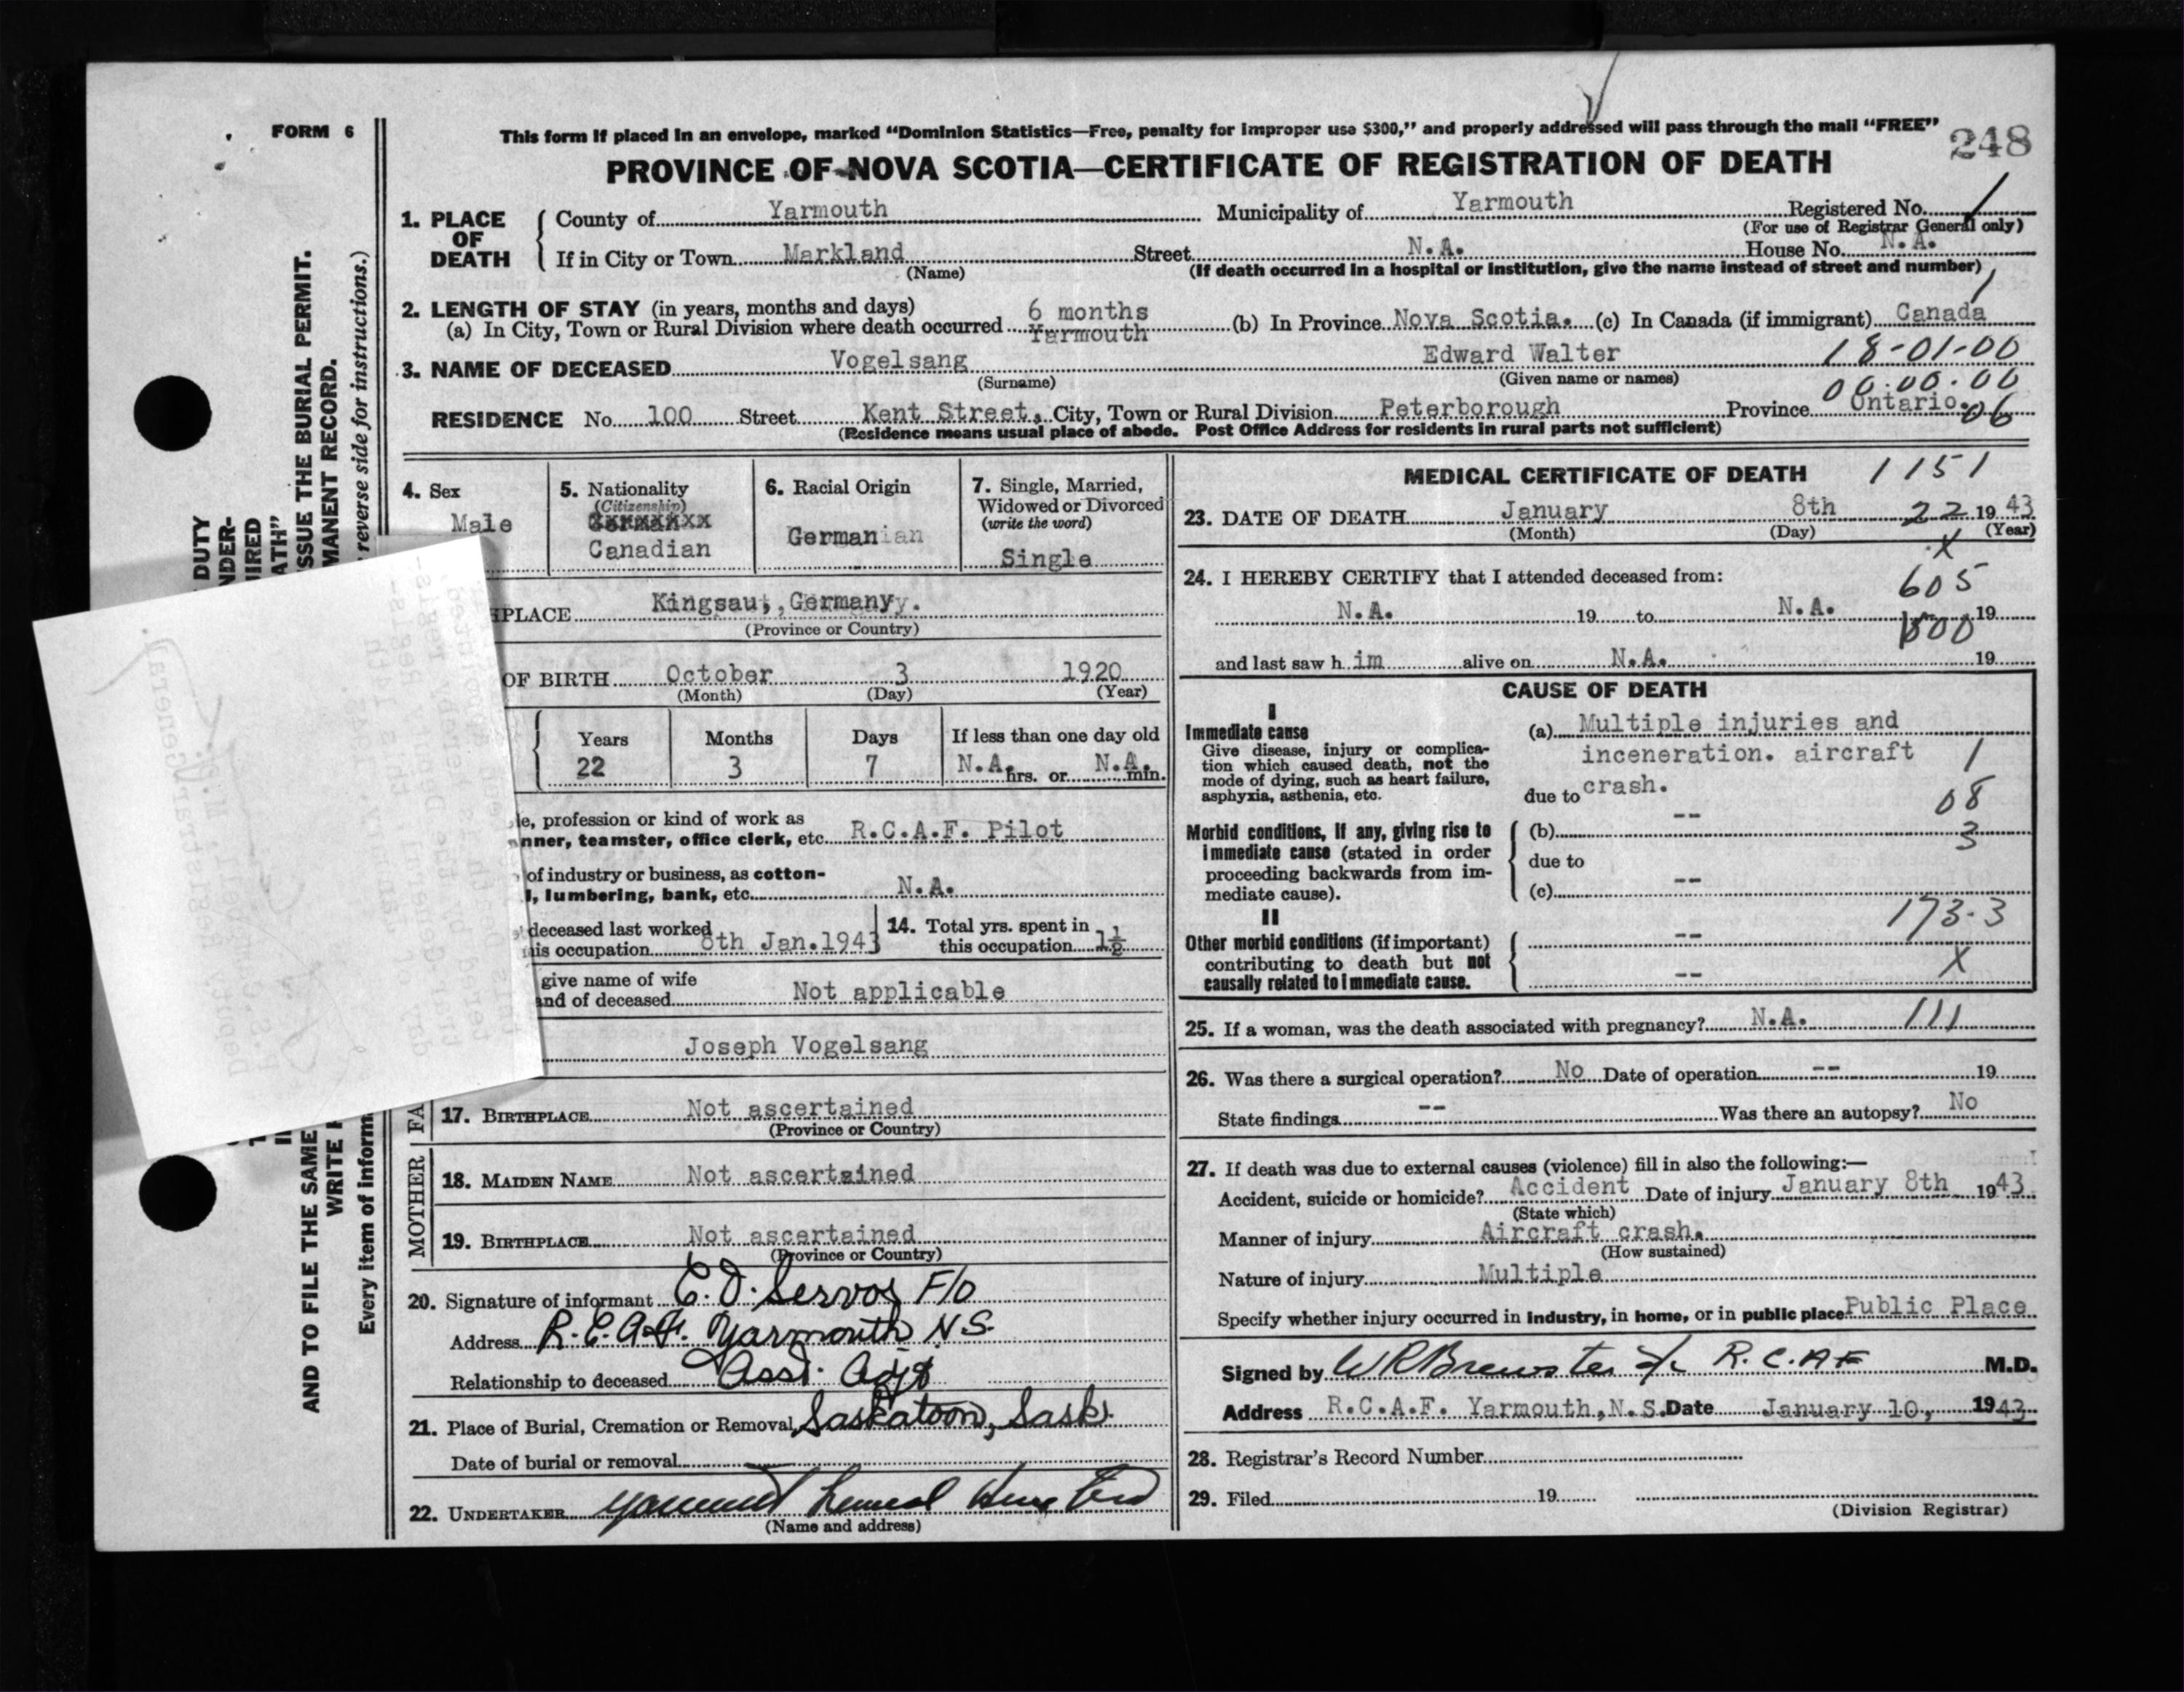 FORM 6
This form if placed in an envelope, marked “Dominion Statistics—Free, penalty for improper use $300,” and properly addressed will pass through the mail “FREE”
248
PROVINCE OF NOVA SCOTIA—CERTIFICATE OF REGISTRATION OF DEATH
1. PLACE OF DEATH
County of Yarmouth Municipality of Yarmouth Registered No. 1
(For use of Registrar General only)
If in City or Town Markland Street N.A. House No. N.A.
(Name) (If death occurred in a hospital or institution, give the name instead of street and number)
2. LENGTH OF STAY (in years, months and days)
(a) In City, Town or Rural Division where death occurred 6 months Yarmouth (b) In Province Nova Scotia. (c) In Canada (if immigrant) Canada
3. NAME OF DECEASED Vogelsang Edward Walter 18-01-00
(Surname) (Given name or names) 00.00.00
RESIDENCE No. 100 Street Kent Street, City, Town or Rural Division Peterborough Province Ontario. 06
(Residence means usual place of abode. Post Office Address for residents in rural parts not sufficient)
4. Sex
Male
5. Nationality
(Citizenship)
Canadian
6. Racial Origin
German
7. Single, Married, Widowed or Divorced
(write the word)
Single
PLACE Kingsau, Germany.
(Province or Country)
OF BIRTH October 3 1920
(Month) (Day) (Year)
Years Months Days If less than one day old
22 3 7 N.A. hrs. or N.A. min.
e, profession or kind of work as
nner, teamster, office clerk, etc. R.C.A.F. Pilot
of industry or business, as cotton-
l, lumbering, bank, etc. N.A.
deceased last worked
his occupation 8th Jan.1943
14. Total yrs. spent in
this occupation 1½
give name of wife
and of deceased Not applicable
Joseph Vogelsang
FA
17. BIRTHPLACE Not ascertained
(Province or Country)
MOTHER
18. MAIDEN NAME Not ascertained
19. BIRTHPLACE Not ascertained
(Province or Country)
20. Signature of informant E.D. Servos F/O
Address R.C.A.F. Yarmouth N.S.
Relationship to deceased Asst. Adjt
21. Place of Burial, Cremation or Removal Saskatoon, Sask.
Date of burial or removal
22. UNDERTAKER Yarmouth
(Name and address)
MEDICAL CERTIFICATE OF DEATH 1151
23. DATE OF DEATH January 8th 22 1943
(Month) (Day) (Year)
X
24. I HEREBY CERTIFY that I attended deceased from: 605
N.A. 19 to N.A. 19
and last saw h im alive on N.A. 19
CAUSE OF DEATH
I
Immediate cause
Give disease, injury or complica-
tion which caused death, not the
mode of dying, such as heart failure,
asphyxia, asthenia, etc.
(a) Multiple injuries and
inceneration. aircraft 1
due to crash.
08
Morbid conditions, if any, giving rise to
immediate cause (stated in order
proceeding backwards from im-
mediate cause).
(b) -- 3
due to
(c) --
173.3
II
Other morbid conditions (if important)
contributing to death but not
causally related to immediate cause.
--
-- X
25. If a woman, was the death associated with pregnancy? N.A. 111
26. Was there a surgical operation? No Date of operation -- 19
State findings -- Was there an autopsy? No
27. If death was due to external causes (violence) fill in also the following:—
Accident, suicide or homicide? Accident Date of injury January 8th 1943
(State which)
Manner of injury Aircraft crash.
(How sustained)
Nature of injury Multiple
Specify whether injury occurred in industry, in home, or in public place Public Place
Signed by WR Brewster F/L R.C.A.F M.D.
Address R.C.A.F. Yarmouth, N.S. Date January 10, 1943
28. Registrar's Record Number
29. Filed 19
(Division Registrar)
DUTY
NDER-
IRED
ATH”
SSUE THE BURIAL PERMIT.
MANENT RECORD.
reverse side for instructions.)
AND TO FILE THE SAME
WRITE
Every item of inform